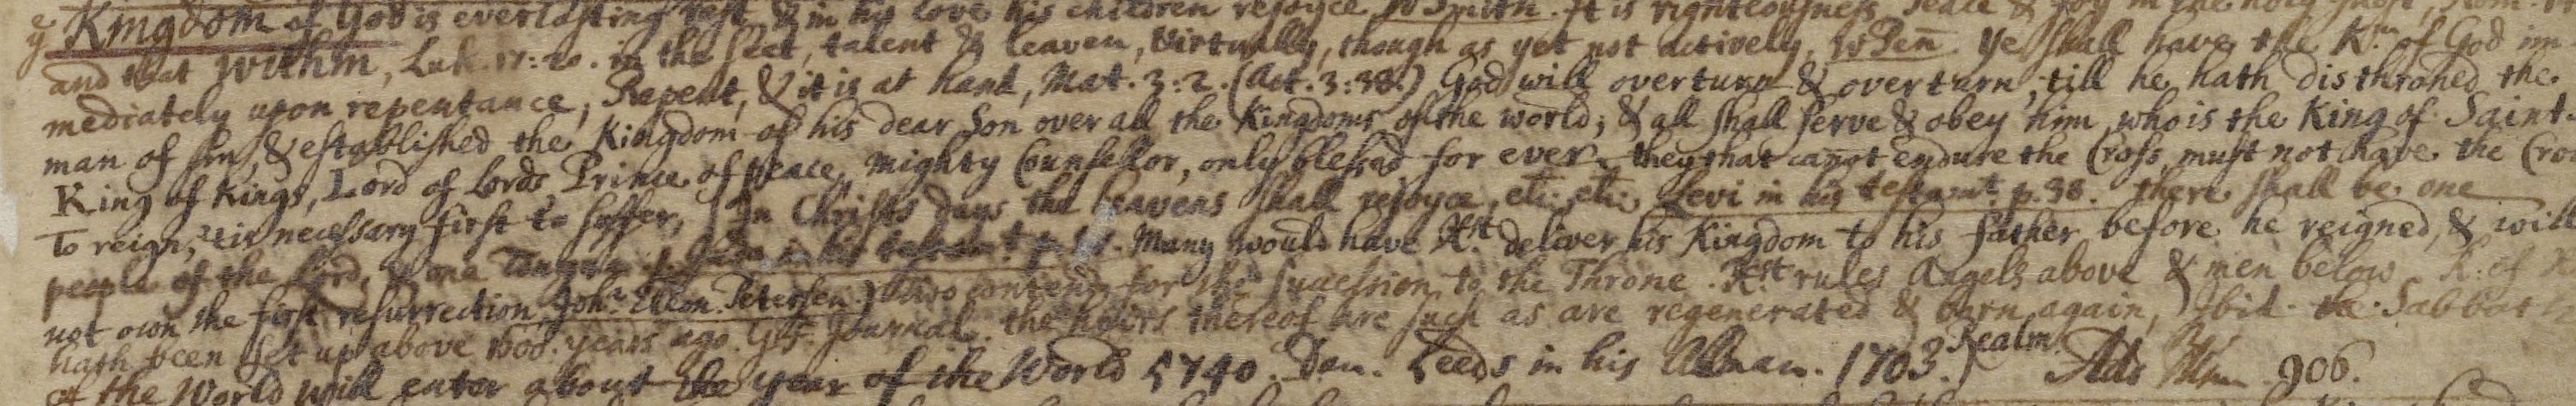 ye Kingdom of God is everlasting rest, & in his love his children rejoyce, W Smith. It is righteousness, Peace & Joy in the holy ghost, Rom.
and that within, Luk. 17: 20. in the seet, talent & leaven, virtually, though as yet not actively, W Pen̄. Ye shall have the K.m of God im
mediately upon repentance, Repent, & it is at hand, Mat. 3:2. (Act. 3:38.) God will overturn & overturn, till he hath disthroned the
man of sin, & established the Kingdom of his dear Son over all the Kingdoms of the world; & all shall serve & obey him, who is the King of Saint.
King of Kings, Lord of Lords Prince of peace, mighty Counsellor, only blessed for ever. they that cañot endure the Cross, must not have the Cro
To reign, 'tis necessary first to suffer, In Christs days the heavens shall rejoyce, etc: etc: Levi in his testam.t p. 98. there shall be one
people of the Lord, & one Tongue, Juda in his testam.t p. Many would have X.st deliver his Kingdom to his father, before he reigned, & will
not own the first resurrection, Joh.n Wilem. Petersen.) Two contend for the succession to the Throne. X.st rules Angels above & men below K: of
hath been set up above 1600. years ago. G. F. Journal. the heirs thereof are such as are regenerated & born again, Ibid. the Sabbath
of the World will enter about the year of the World 5740. Dan. Leeds in his Alman. 1703.) Realm. Add Num. 906.